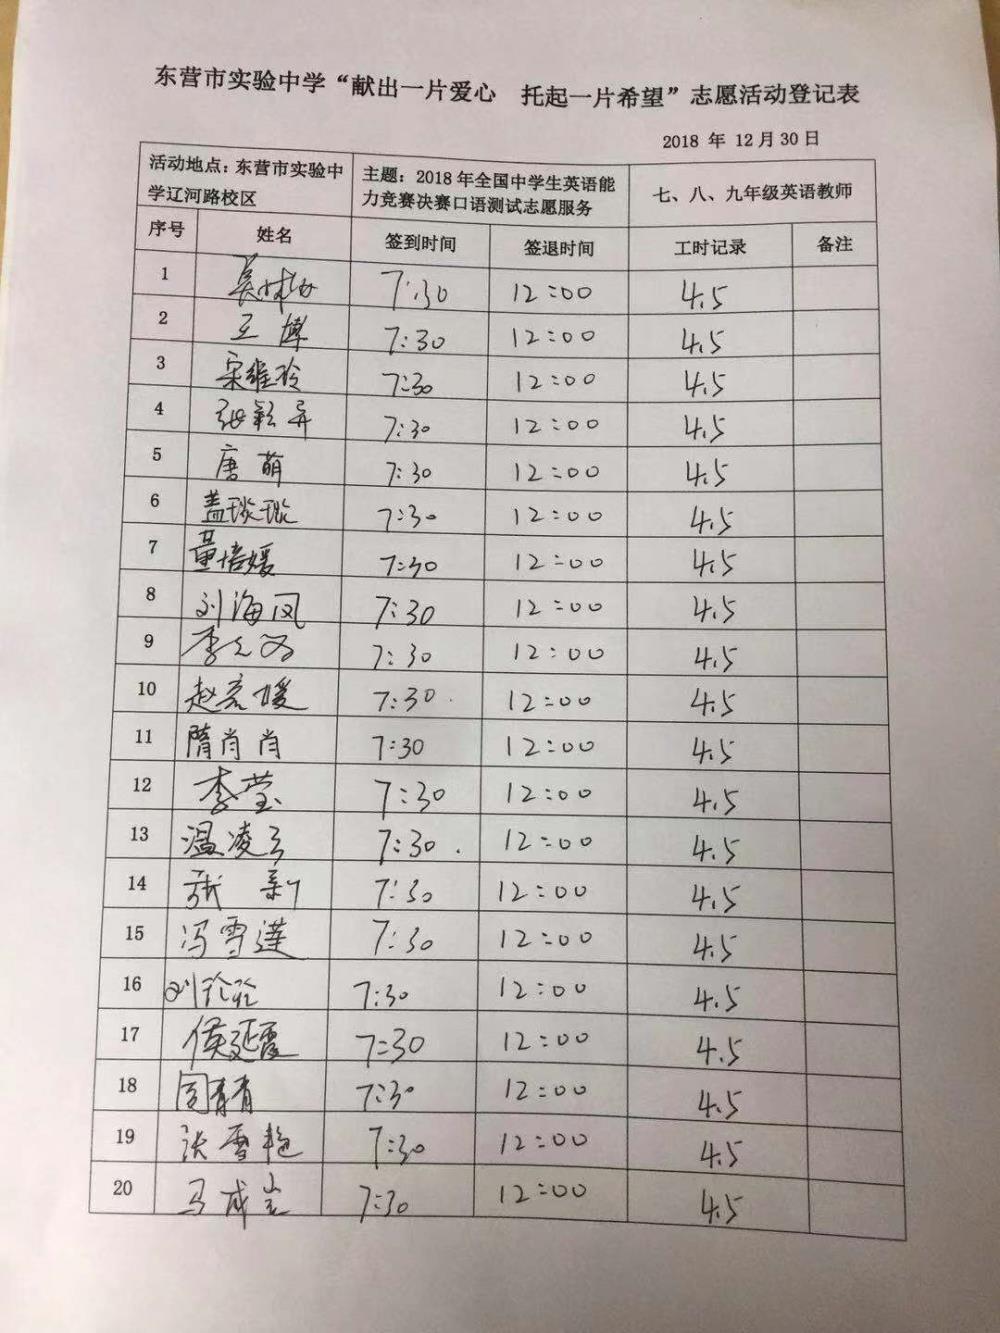 东营市实验中学“献出一片爱心 托起一片希望”志愿活动登记表
2018 年 12月30日
活动地点：东营市实验中 主题：2018年全国中学生英语能 七、八、九年级英语教师
学辽河路校区 力竞赛决赛口语测试志愿服务
序号 姓名 签到时间 签退时间 工时记录 备注
1 7:30 12:00 4.5
2 王博 7:30 12:00 4.5
3 宋维玲 7:30 12:00 4.5
4 张颖异 7:30 12:00 4.5
5 唐萌 7:30 12:00 4.5
6 盖琰琰 7:30 12:00 4.5
7 董培媛 7:30 12:00 4.5
8 刘海凤 7:30 12:00 4.5
9 7:30 12:00 4.5
10 赵亮媛 7:30 12:00 4.5
11 隋肖肖 7:30 12:00 4.5
12 李莹 7:30 12:00 4.5
13 温凌云 7:30 12:00 4.5
14 张新 7:30 12:00 4.5
15 冯雪莲 7:30 12:00 4.5
16 7:30 12:00 4.5
17 侯延霞 7:30 12:00 4.5
18 周青青 7:30 12:00 4.5
19 雪艳 7:30 12:00 4.5
20 马成 7:30 12:00 4.5